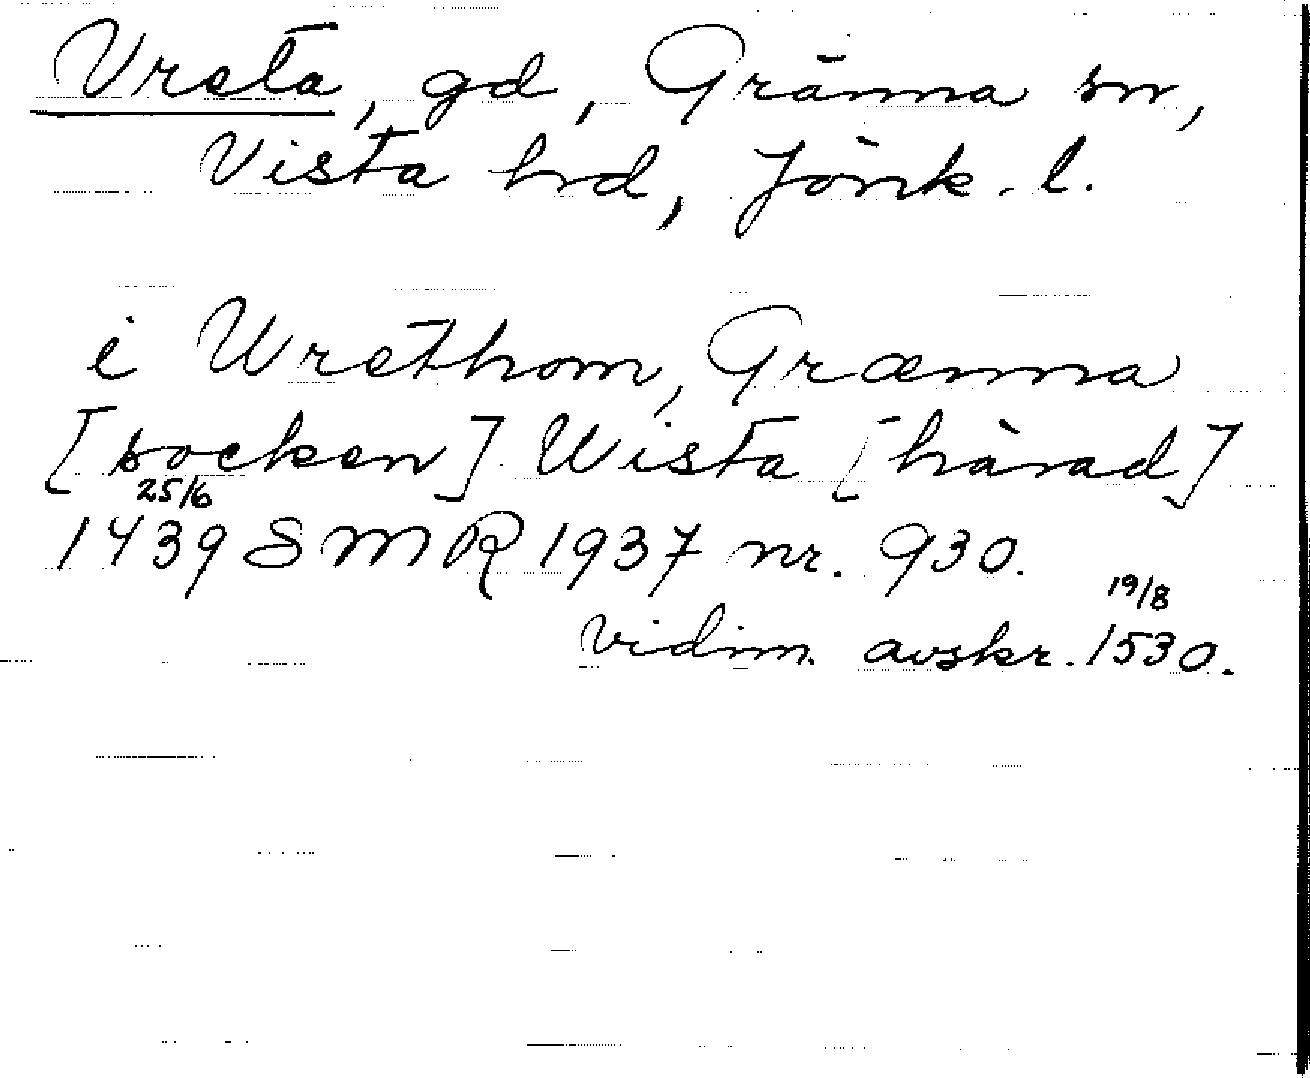 Vreta, gd, Gränna sn,
Vista hd, Jönk. l.
i Wrethom, Grænna
[socken] Wista [härad]
25/6
1439 SMR 1937 nr. 930.
19/8
vidim. avskr. 1530.